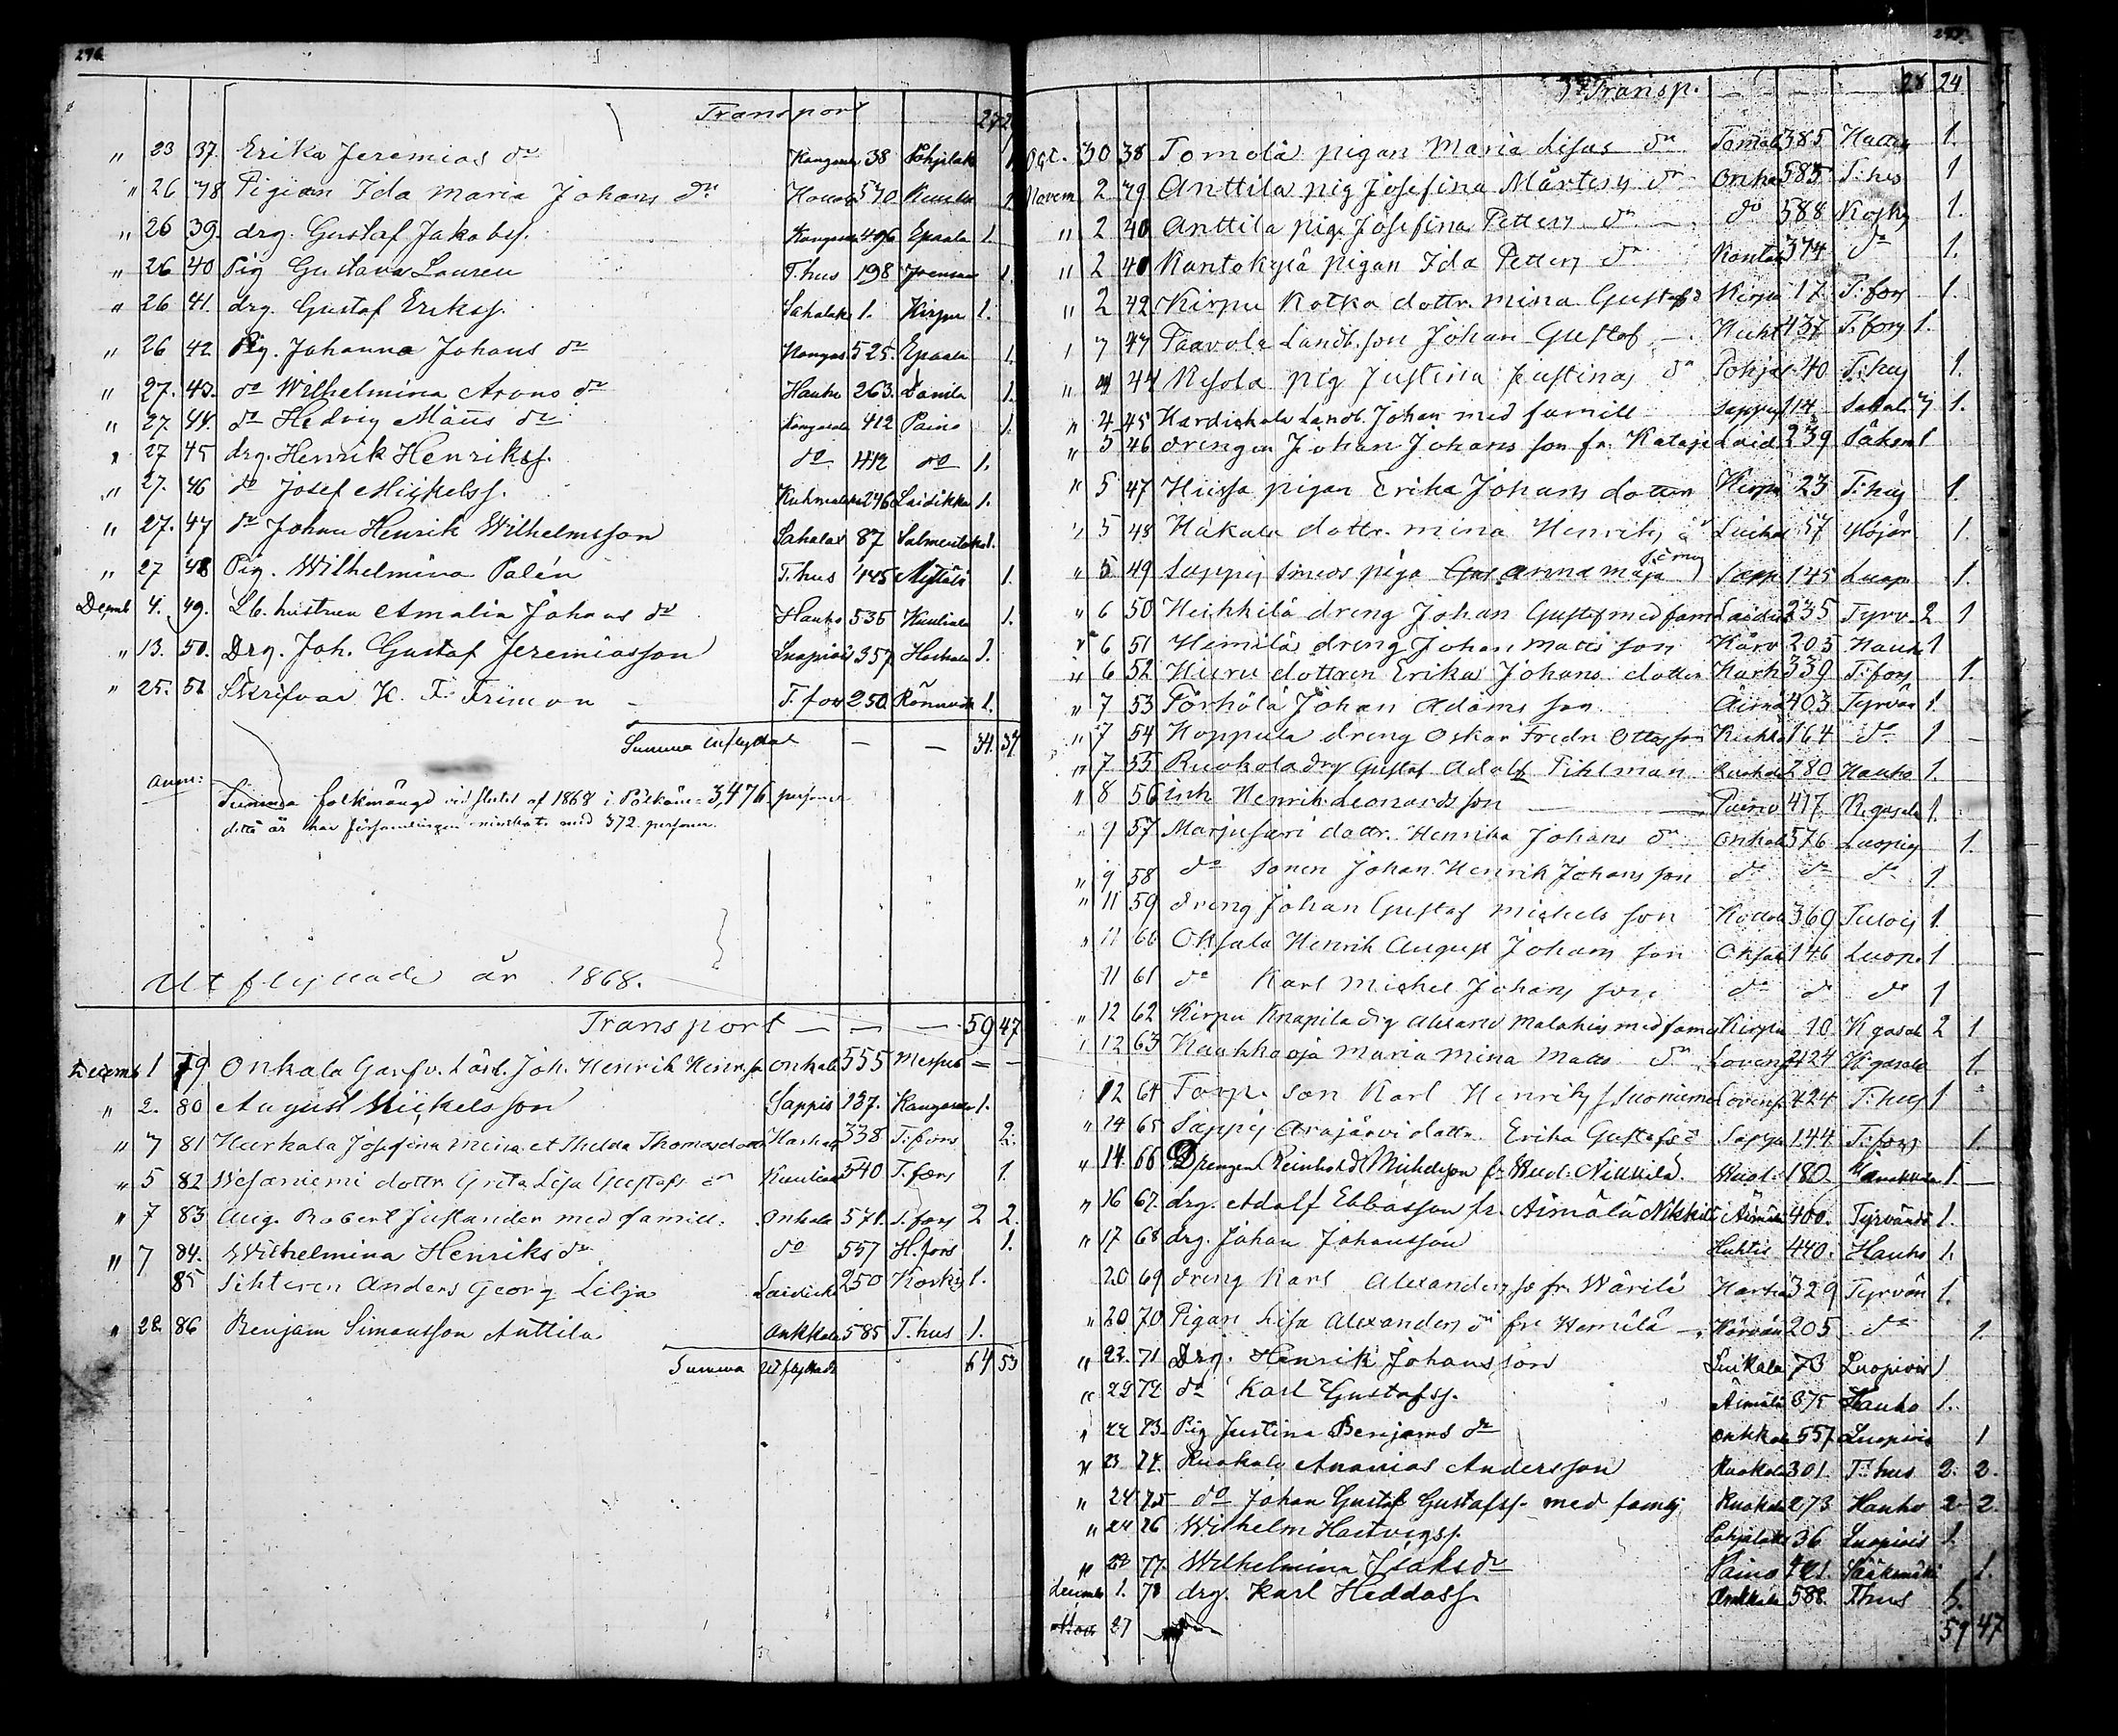 296
Transport 27 2
" 23 37. Erika Jeremias dr Kangasa 38 Pohjalak 1
" 26 38 Pigan Ida Maria Johans dr 570 1
" 26 39. drg. Gustaf Jakobss. Kangasa 496 Epaala 1.
" 26 40 Pig Gustava Lauren T.hus 198 1.
" 26 41. drg. Gustaf Erikss. Sahalak 1. Kirpu 1.
" 26 42 Pig. Johanna Johans dr Kangas 525. Epaala 1.
" 27. 43. do Wilhelmina Arons dr Hauho 263. 1.
" 27 44. do Hedvig Måns dr Kangasala 412 Paino 1.
" 27 45 drg. Henrik Henrikss. do 412 do 1.
" 27. 46 do Josef Mickelss. Kuhmalaks 246 Laidikka 1.
" 27. 47 do Johan Henrik Wilhelmsson Sahalax 87 Salmentaka 1.
" 27 48 Pig. Wilhelmina Palén T.hus 445 1.
Decmb 4. 49. Lb. hustrun Amalia Johans dr Hauho 536 Kuuliala 1.
" 13. 50. Drg. Joh. Gustaf Jeremiasson Luopiois 357 1.
" 25. 51 Skrifvar K. F. Friman T. fors 250 1.
Summa inflyttad — — 34. 37
Anm: Summa folkmängd vid slutet af 1868 i Pälkäne = 3,476 personer
detta år har församlingen minskats med 372 personer.
Utflyttade år 1868.
Transport — — — 59 47
Decemb 1 79 Onkala Garfv. Lärl. Joh. Henrik Henr. sn Onkala 555 = —
" 2. 80 August Mickelsson Sappis 137. Kangasala 1.
" 7 81 Josefina Mina et Hulda Thomasdottr 338 T:fors 2.
" 5 82 Wesaniemi dottr Greta Lisa Gustafs dr Kuuliala 540 T.fors 1.
" 7 83 Aug. Robert Juslander med famill. Onkala 571. T. fors 2 2.
" 7 84. Wilhelmina Henriks dr do 557 H.fors 1.
85 Anders Georg Lilja Laidick 250 Koskis 1.
" 28. 86 Benjam Simonsson Anttila Onkkala 585 T.hus 1.
Summa Utflyttade 64 53
297.
Transp. — — — 28 24
Oct. 30 38 Tomola pigan Maria Lisas dr Tomola 385 1.
Novem 2 39 Anttila pig Josefina Mårtens dr Onka 585 T:hus 1
" 2 40 Anttila pig. Josefina Petters dr — do 588 Koskis 1.
" 2 40 Kantokylä pigan Ida Petters dr Kantok 374 do 1.
" 2 42 Kirpu Kotka dottr. Mina Gustafs d Kirpu 17 T:fors 1.
" 7 47 Paavola Landb. son Johan Gustaf — Huht 437 T.fors 1.
" 44 Kesola pig Justina Justinas dr Pohjal 40 T:hus 1.
" 4 45 Landb. Johan med famill Sappis 114 1.
" 5 46 drengen Johan Johans son fr. Kataja Laid 239 1
" 5 47 Hussa pigan Erika Johans dotter Kirpu 23 T:hus 1.
" 5 48 Hakala dottr. Mina Henriks dr 57 1.
" 5 49 Sappis Simeos piga Anna Maja Sapp 145 Luop. 1.
" 6 50 Heikkilä dreng Johan Gustaf med fam Laidik 235 Tyrv. 2 1
" 6 51 Hemilä dreng Johan Matts son Kärv 205 Hauh 1
" 6 52 Hiiru dottren Erika Johans dotter Harh 339 T:fors 1.
" 7 53 Pörhölä Johan Adams son Äimä 403 Tyrvän 1.
" 7 54 Hoppula dreng Oskar Fredr. Ottosson Huhti 164 do 1
" 7 55 Ruokola drg Gustaf Adolf Pihlman Ruokola 280 Hauho 1.
" 8 56 inh Henrik Leonardsson — Paino 417 K.gasala 1.
9 57 Marjusari dottr. Henrika Johans dr Onkala 576 Luopiois 1.
" 9 58 do Sonen Johan Henrik Johans son do do do 1.
" 11 59 dreng Johan Gustaf Mickels son 369 Tulois 1.
" 11 60 Oksala Henrik August Johans son Oksala 146 Luop. 1
11 61 do Karl Mickel Johans son do do do 1
" 12 62 Kirpu Knapila drg Alexand Malakias med fam Kirpu 10 K.gasal 2 1
" 12 63 Kaukkooja Maria Mina Matts dr 424 K.gasala 1.
12 64 Torp. son Karl Henriks s. 424 T:hus 1
" 14 65 Sappis Arajärvi dottr. Erika Gustafs d Sappis 144 T:fors 1.
" 14. 66 Drengen Reinhold Michelsson fr. 180. 1 —
" 16 67. drg. Adolf Ebbasson fr. Äimälä Nikkilä Äimälä 400. Tyrvändö 1.
" 17 68 drg. Johan Johansson Huhtis 440. Hauho 1.
20 69 dreng Karl Alexanders so fr Wärilä 329 Tyrvän 1.
" 20 70 Pigan Lisa Alexanders dr frn Hemilä — Kärvän 205 do 1.
" 22. 71 Drg. Henrik Johansson 73 Luopiois 1
" 22 72 do Karl Gustafss. Äimälä 375 Hauho 1.
" 22 73. Pig Justina Benjams dr Onkkala 557 Luopiois 1
" 23 74. Ruokola Ananias Andersson Ruokola 301. T:hus 2. 2.
" 24 75 do Johan Gustaf Gustafss. med famij Ruokola 273 Hauho 2 2
" 24 76 Wilhelm Hartvigss. Pohjalaks 36 Luopiois 1.
" 28 77. Wilhelmina Isaks dr Paino 421. Sääksmäki 1.
decemb 1. 78 drg. Karl Heddass. Onkkala 588. T.hus 1.
27 59 47